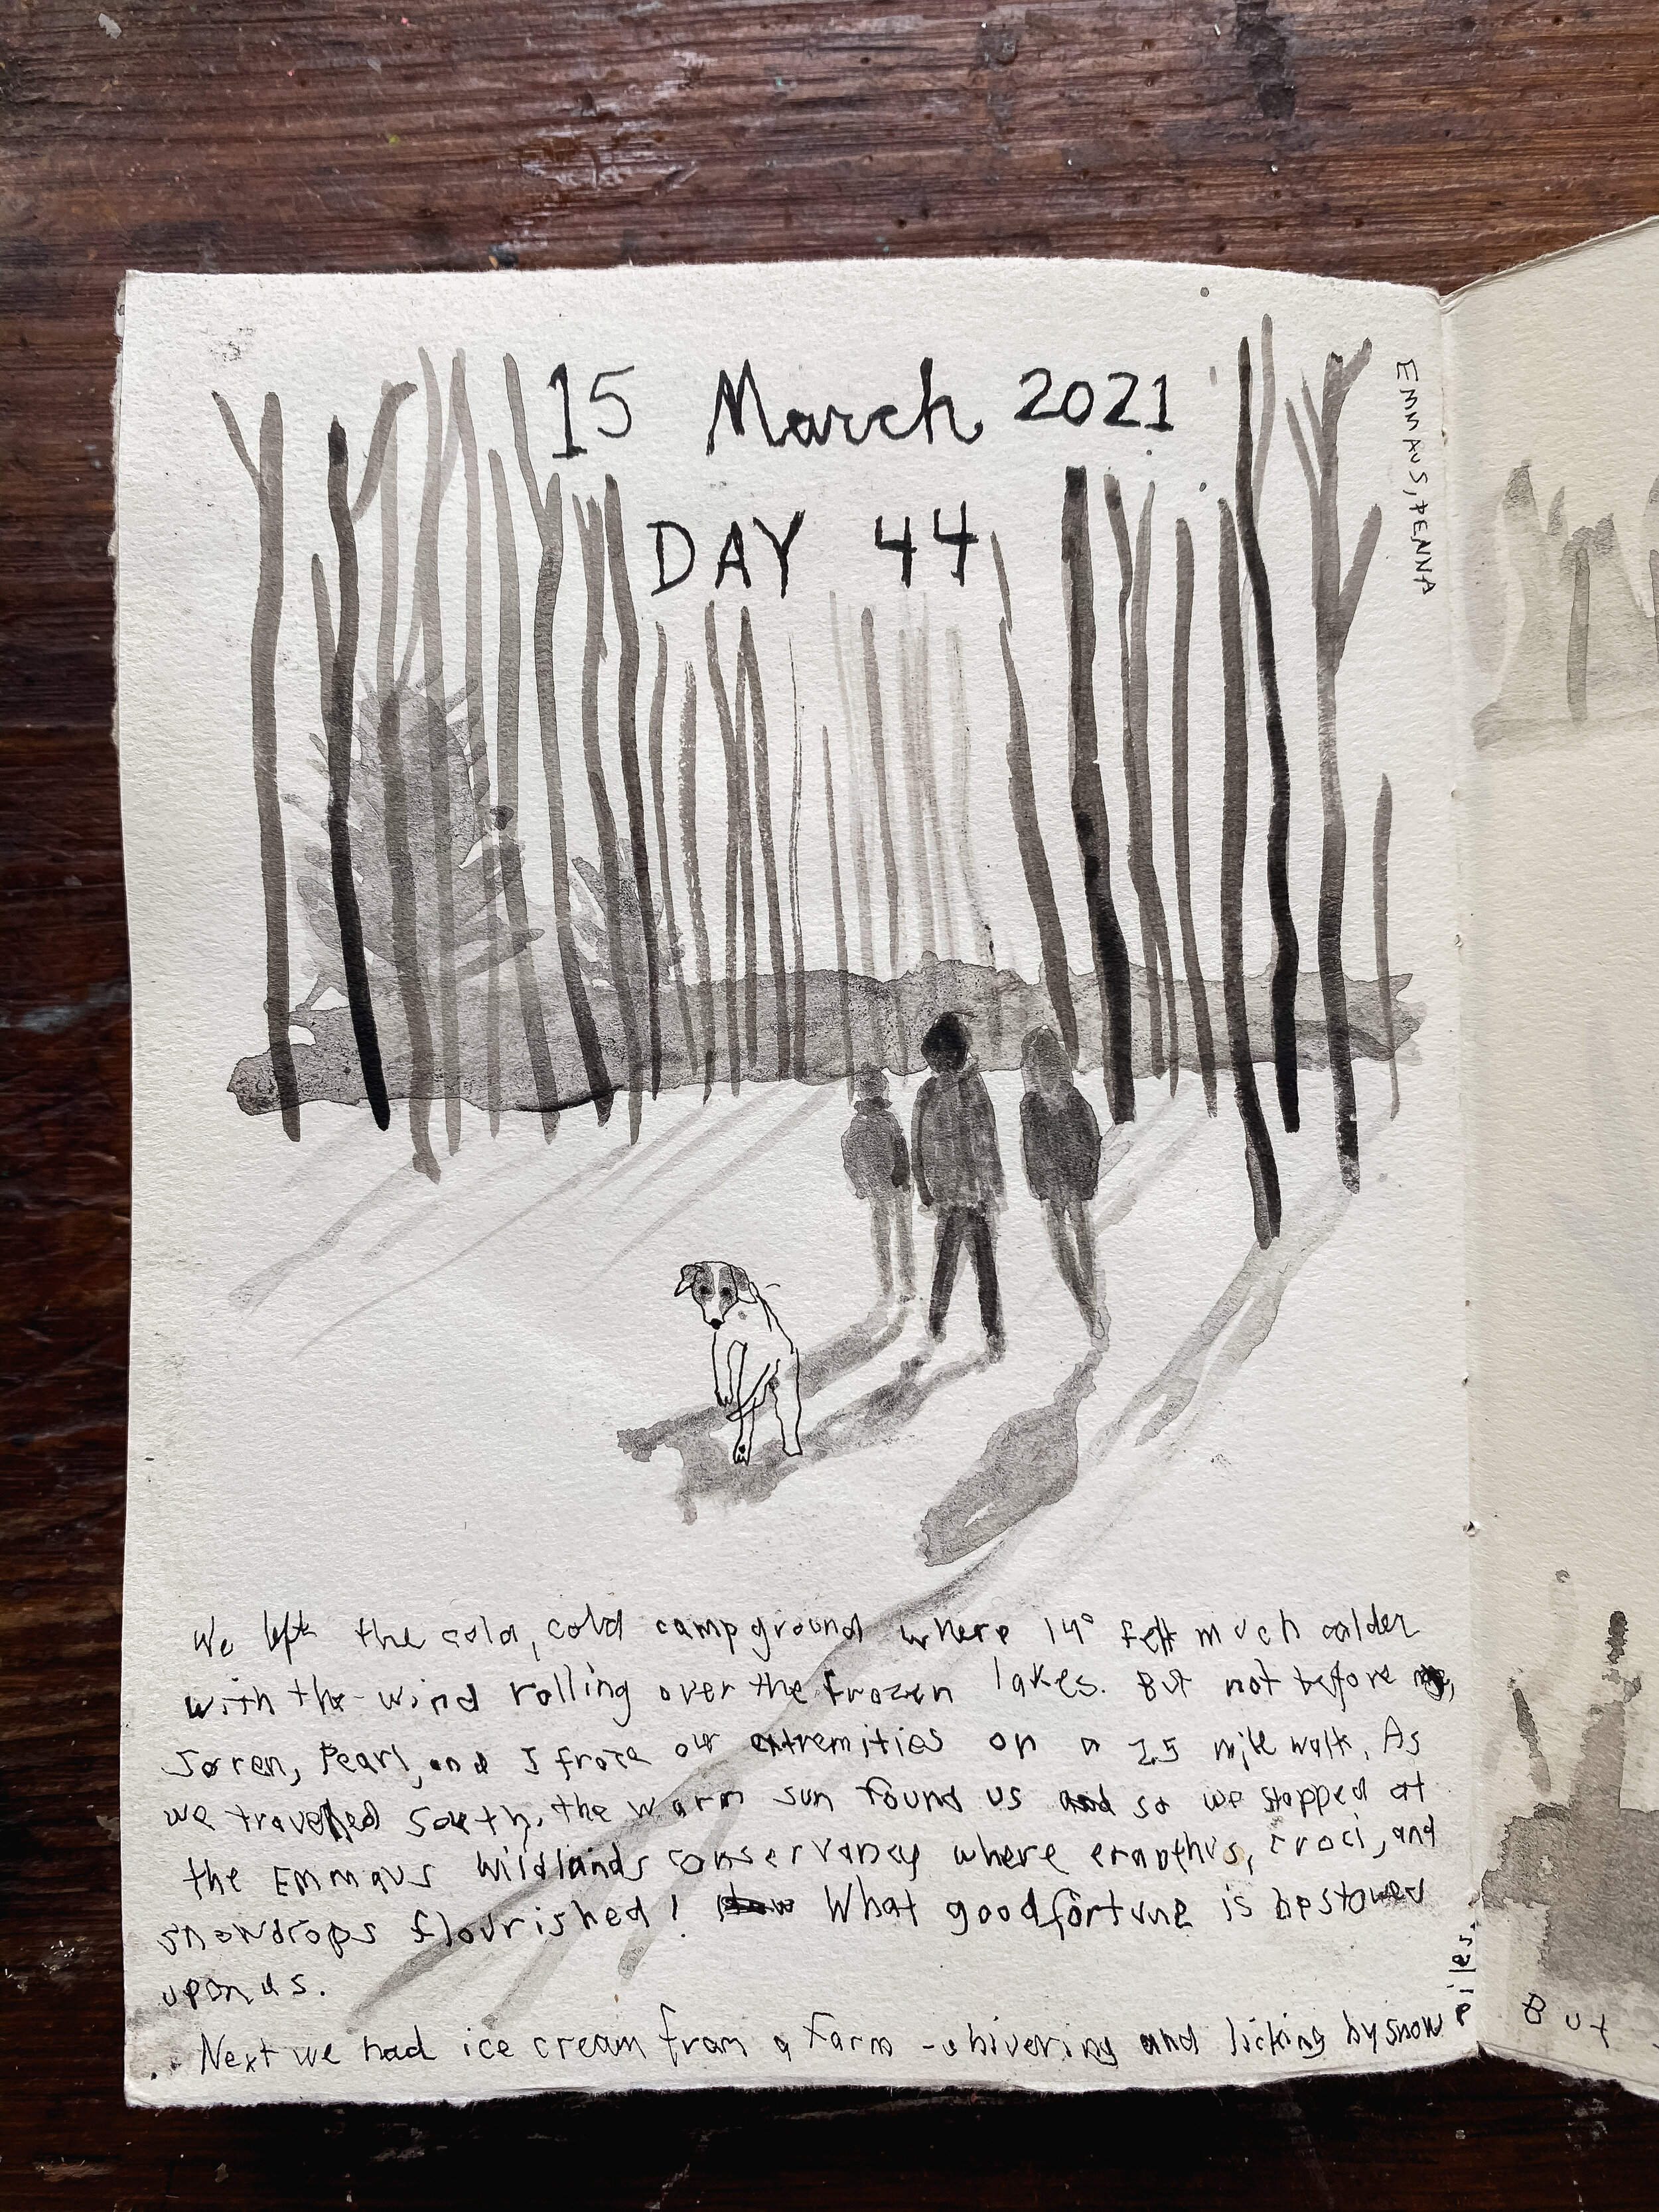 15 March 2021
DAY 44
EMMAUS, PENNA
We left the cold, cold campground where 14° felt much colder
with the wind rolling over the frozen lakes. But not before
Søren, Pearl, and I froze our extremities on a 2.5 mile walk. As
we travelled South, the warm sun found us and so we stopped at
the Emmaus Wildlands conservancy where eranthis, croci, and
snowdrops flourished! What good fortune is bestowed
upon us.
Next we had ice cream from a farm - shivering and licking by snow
piles.
But